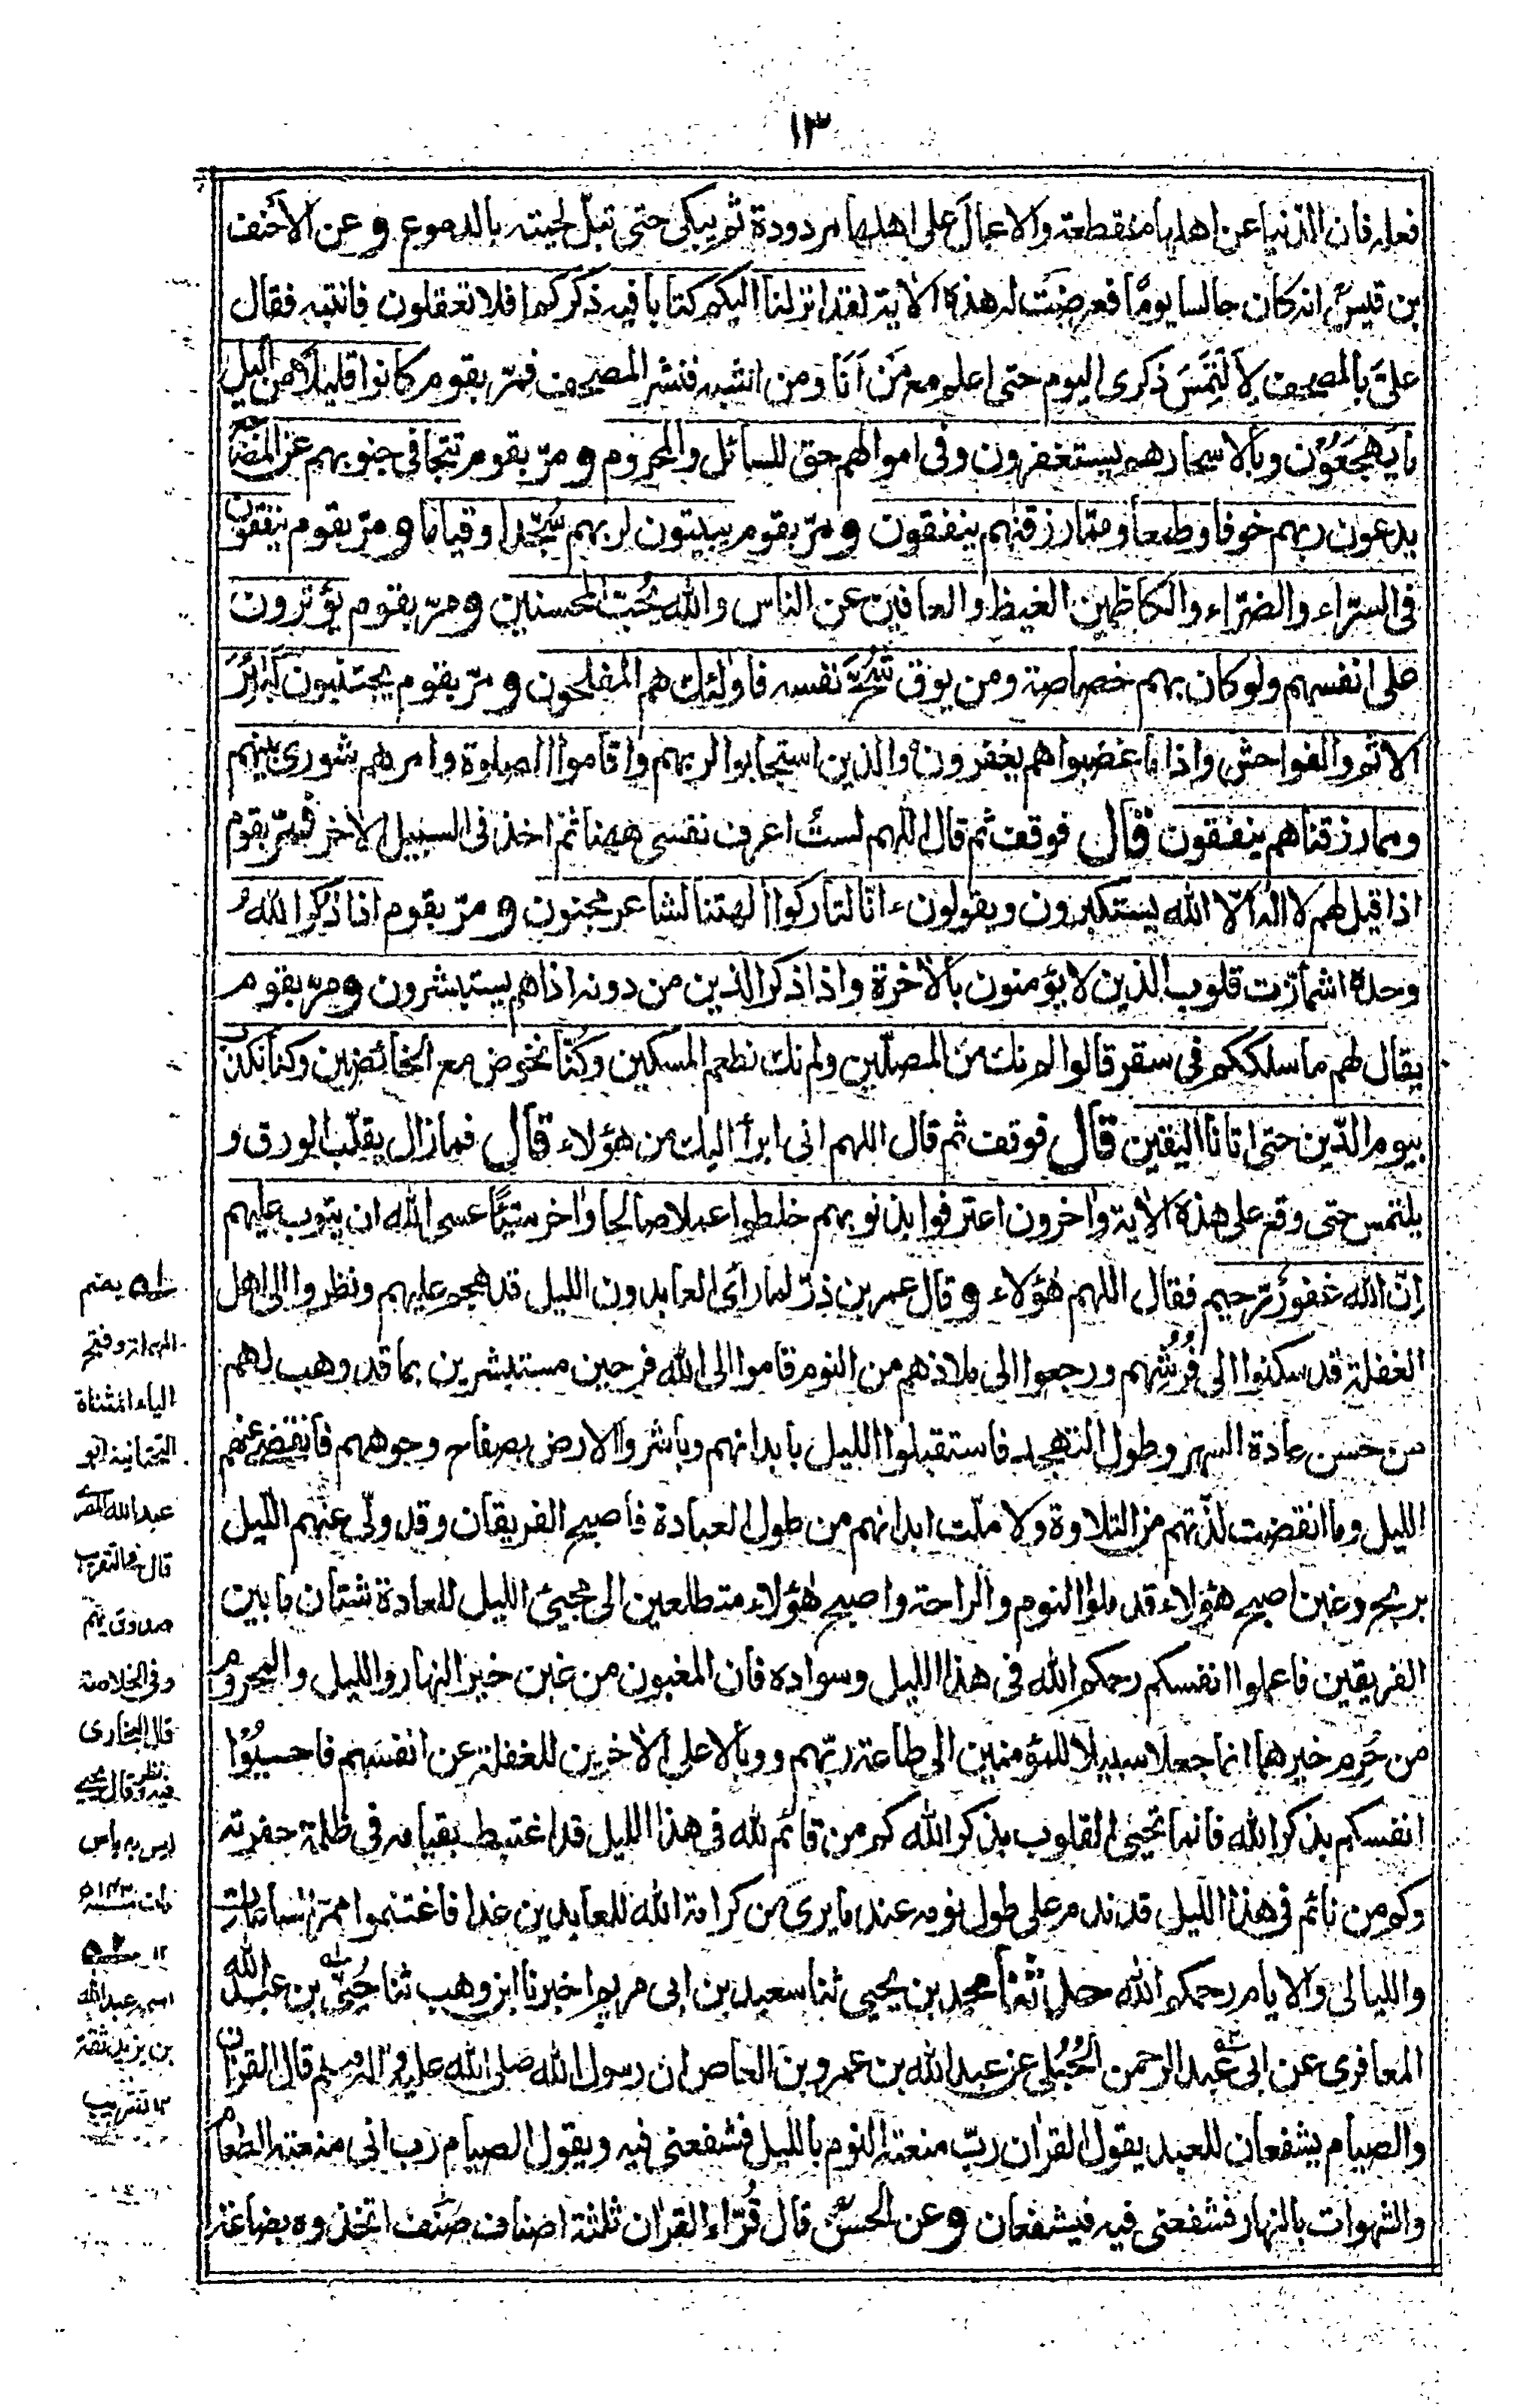 ١٣
فعله فان الدّنيا عن اهلها منقطعة والاعمال على اهلها مردودة ثم يبكى حتى تبلّ لحيته بالدموع وعن الأحنف
بن قيسؒ انه كان جالسا يومًا فعرضت له هذه الآية لقد انزلنا اليكم كتابا فيه ذكركم افلا تعقلون فانتبه فقال
علىّ بالمصحف لألتَمِسَ ذكرى اليوم حتى اعلم مع مَن اَنَا ومن اشبه فنشر المصحف فمرّ بقوم كانوا قليلا من اليل
ما يَهْجَعُوْن وبالاسحار هم يستغفرون وفى اموالهم حق للسائل والمحروم ومرّ بقوم تتجافى جنوبهم عن المضاجع
يدعون ربهم خوفا وطمعا ومما رزقنٰهم ينفقون ومرّ بقوم يبيتون لربهم سُجّدا وقياما ومرّ بقوم ينفقون
فى السرّاء والضرّاء والكاظمين الغيظ والعافين عن الناس والله يُحبّ المحسنين ومرّ بقوم يؤثرون
على انفسهم ولو كان بهم خصاصة ومن يوق شُحَّ نفسه فاولٰئك هم المفلحون ومرّ بقوم يجتنبون كبٰئِرَ
الاثم والفواحش واذا ما غضبوا هم يغفرون والذين استجابوا لربهم واقاموا الصلوة وامرهم شورى بينهم
ومما رزقناهم ينفقون قال فوقف ثم قال اللهم لستُ اعرف نفسى ههنا ثم اخذ فى السبيل الاخر فمرّ بقوم
اذا قيل لهم لا اله الّا الله يستكبرون ويقولون ءانا لتاركوا الهتنا لشاعر مجنون ومرّ بقوم اذا ذكر الله
وحده اشمأزّت قلوب الذين لا يؤمنون بالاٰخرة واذا ذكر الذين من دونه اذا هم يستبشرون ومرّ بقوم
يقال لهم ما سلككم فى سقر قالوا لم نك من المصلّين ولم نك نطعم المسكين وكنّا نخوض مع الخائضين وكنا نكذب
بيوم الدّين حتى اتانا اليقين قال فوقف ثم قال اللهم انى ابرأ اليك من هؤلاء قال فما زال يقلّب الورق و
يلتمس حتى وقع على هذه الاٰية واٰخرون اعترفوا بذنوبهم خلطوا عملا صالحا واٰخر سيّئًا عسى الله ان يتوب عليهم
اِنّ الله غفورٌ رّحيم فقال اللهم هٰؤلاء وقال عمر بن ذرّ لما رأى العابدون الليل قد هجم عليهم ونظروا الى اهل
الغفلة قد سكنوا الى فُرُشِهم ورجعوا الى ملاذهم من النوم قاموا الى الله فرحين مستبشرين بما قد وهب لهم
من حسن عادة السهر وطول التهجد فاستقبلوا الليل بابدانهم وباشروا الارض بصفاح وجوههم فانقضى عنهم
الليل وما انقضت لذّتهم من التلاوة ولا ملّت ابدانهم من طول العبادة فاصبح الفريقان وقد ولّى عنهم الليل
بربح وغبن اصبح هؤلاء قد ملوا النوم والراحة واصبح هٰؤلاء متطلعين الى مجئ الليل للعادة شتان ما بين
الفريقين فاعملوا انفسكم رحمكم الله فى هذا الليل وسواده فان المغبون من غبن خير النهار والليل والمحروم
من حُرِم خيرهما انما جعلا سبيلا للمؤمنين الى طاعة ربّهم ووبالا على الاٰخرين للغفلة عن انفسهم فاحسبُوْا
انفسكم بذكر الله فانما تحيى القلوب بذكر الله كم من قائم لله فى هذا الليل قد اغتبط بقيامه فى ظلمة حفرته
وكم من نائم فى هذا الليل قد ندم على طول نومه عند ما يرى من كرامة الله للعابدين غدا فاغتنموا ممرّ الساعات
والليالى والايام رحمكم الله حدثنا محمد بن يحيى ثنا سعيد بن ابى مريم اخبرنا ابن وهب ثنا حُيَىّ بن عبد الله
المعافرى عن ابى عبد الرحمن الحُبُلى عن عبد الله بن عمرو بن العاص ان رسول الله صلى الله عليه واٰله وسلم قال القراٰن
والصيام يشفعان للعبد يقول القراٰن ربّ منعته النوم بالليل فشفعنى فيه ويقول الصيام رب انى منعته الطعام
والشهوات بالنهار فشفعنى فيه فيشفعان وعن الحسنؒ قال قُرّاء القراٰن ثلثة اصناف صنف اتخذوه بضاعة
له بضم
المهملة وفتح
الياء المثناة
التحتانية ابو
عبد الله المصرى
قال فى التقريب
صدوق يهم
وفى الخلاصة
قال البخارى
فيه نظر وقال يحيى
ليس به باس
مات سنه ١٤٣ه
١٢
اسمه عبد الله
بن يزيد ثقة
١٢ تقريب